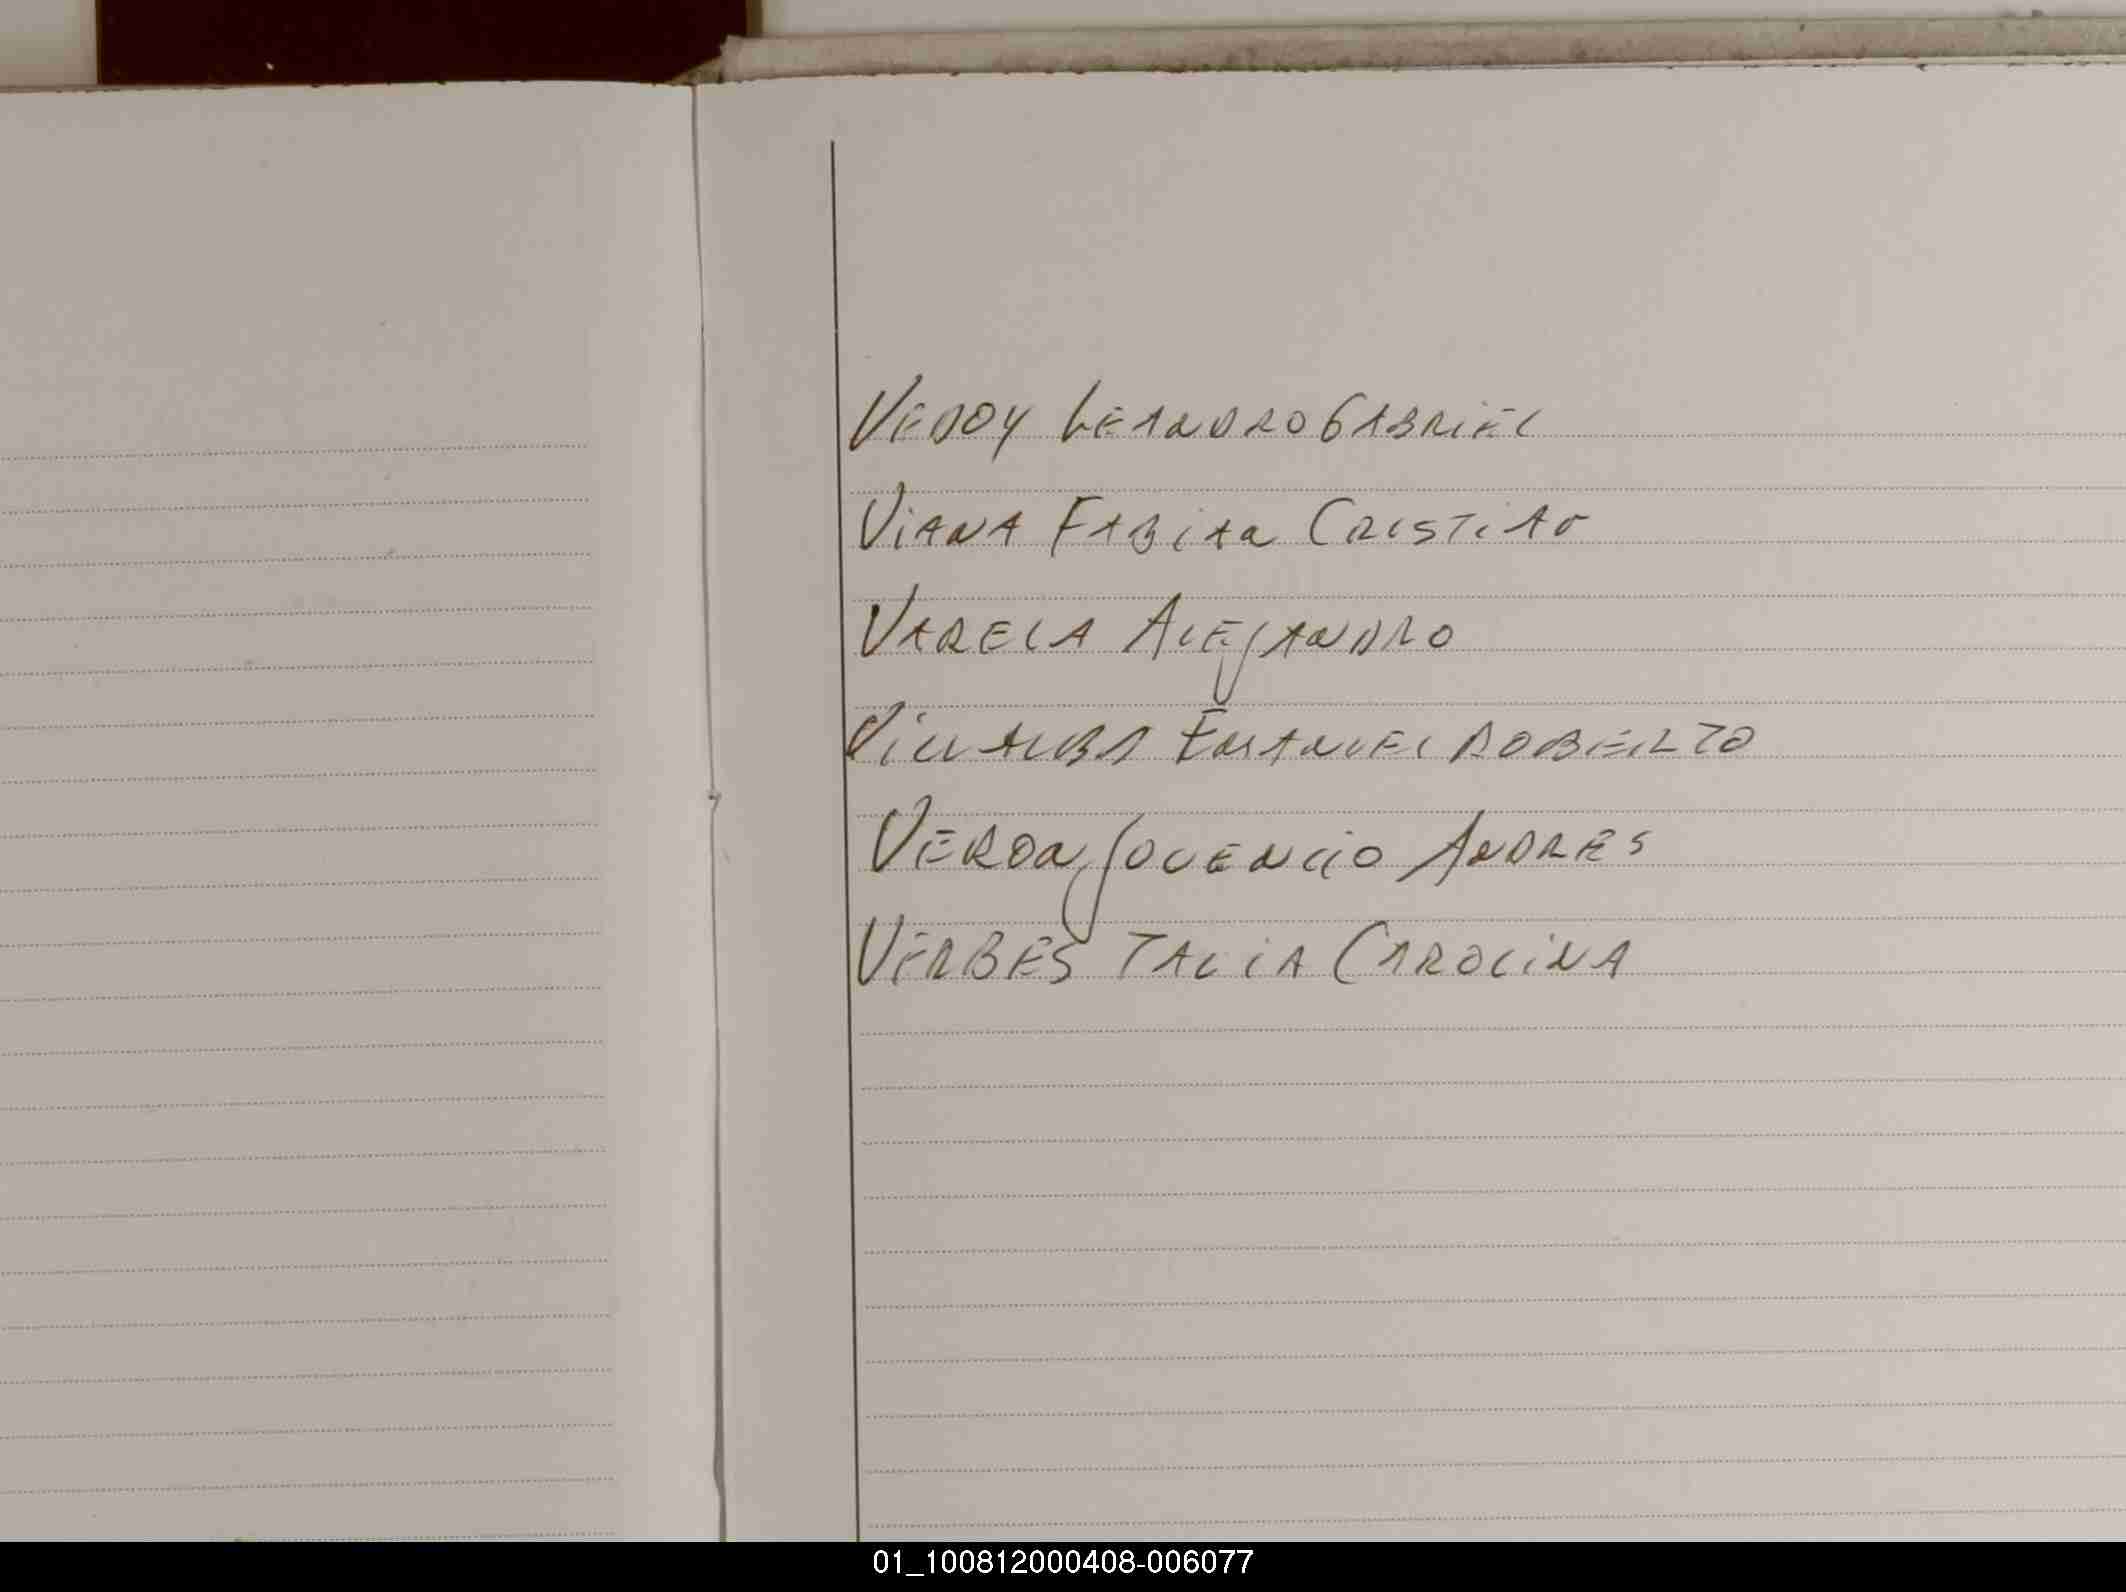 VEDOY LEANDRO GABRIEL
VIANA FABIAN CRISTIAO
VARELA ALEJANDRO
VILLALBA EMANUEL ROBERTO
VERON JOVENCIO ANDRES
VERBES TALIA CAROLINA
01_100812000408-006077